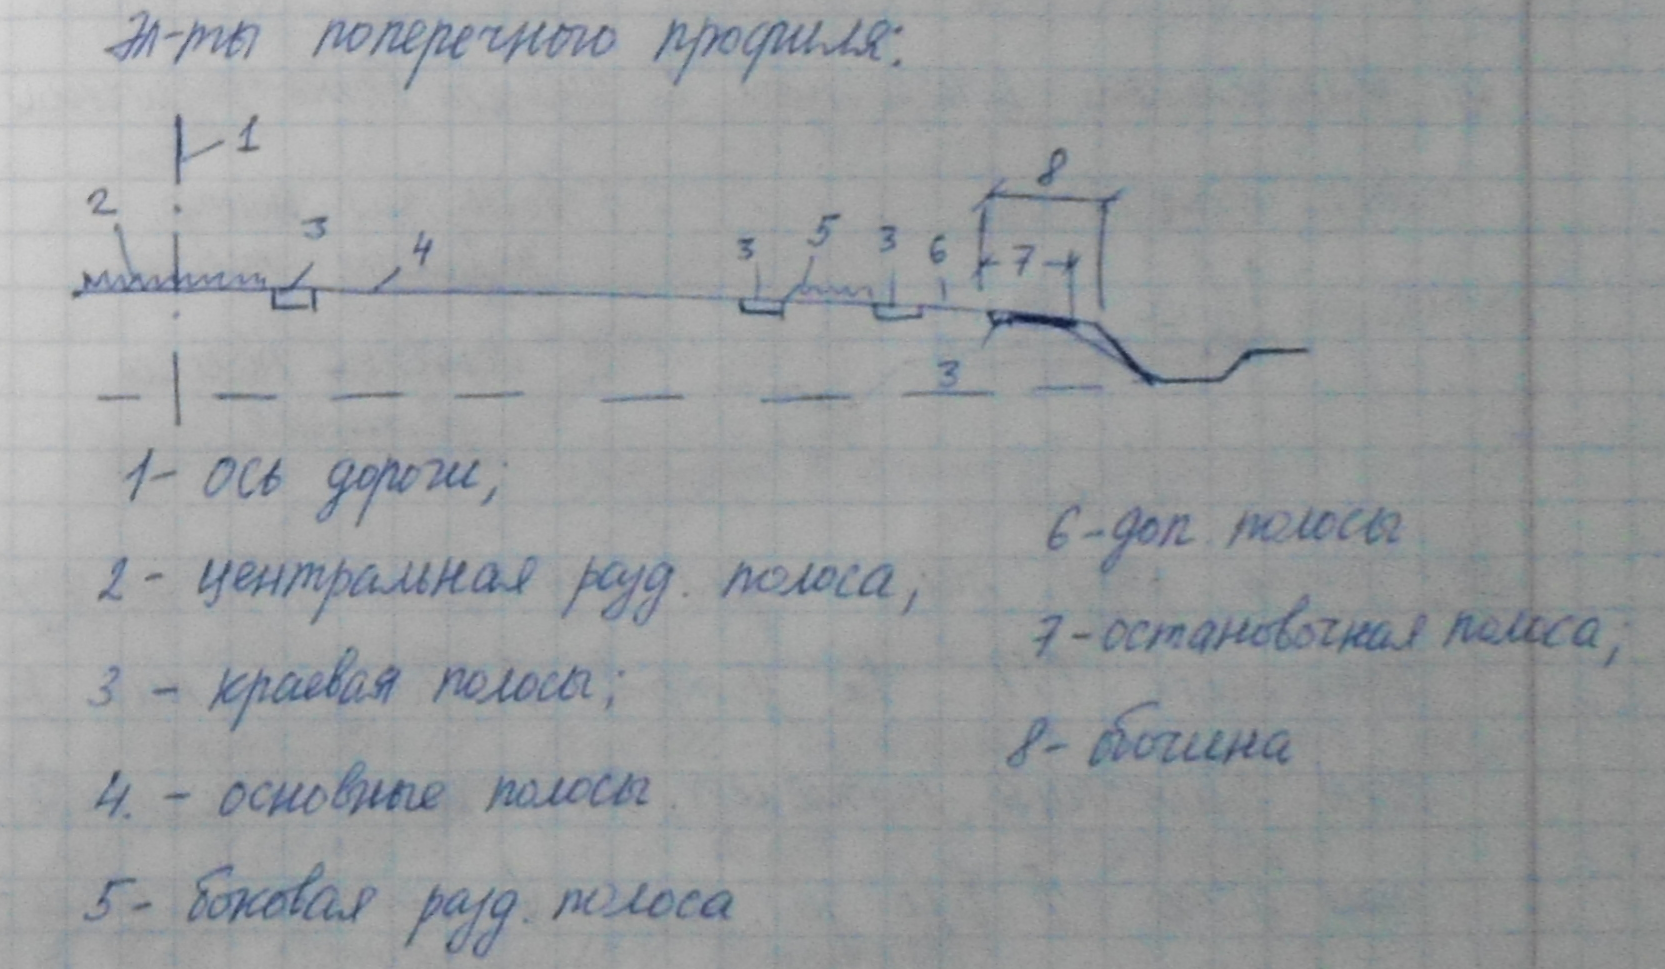 Эл-ты поперечного профиля:
1
8
2
3
4
3
5
3
6
7
3
1- ось дороги;
2 - центральная разд. полоса;
3 - краевая полосы;
4. - основные полосы
5- боковая разд. полоса
6-доп. полосы
7-остановочная полоса;
8- обочина